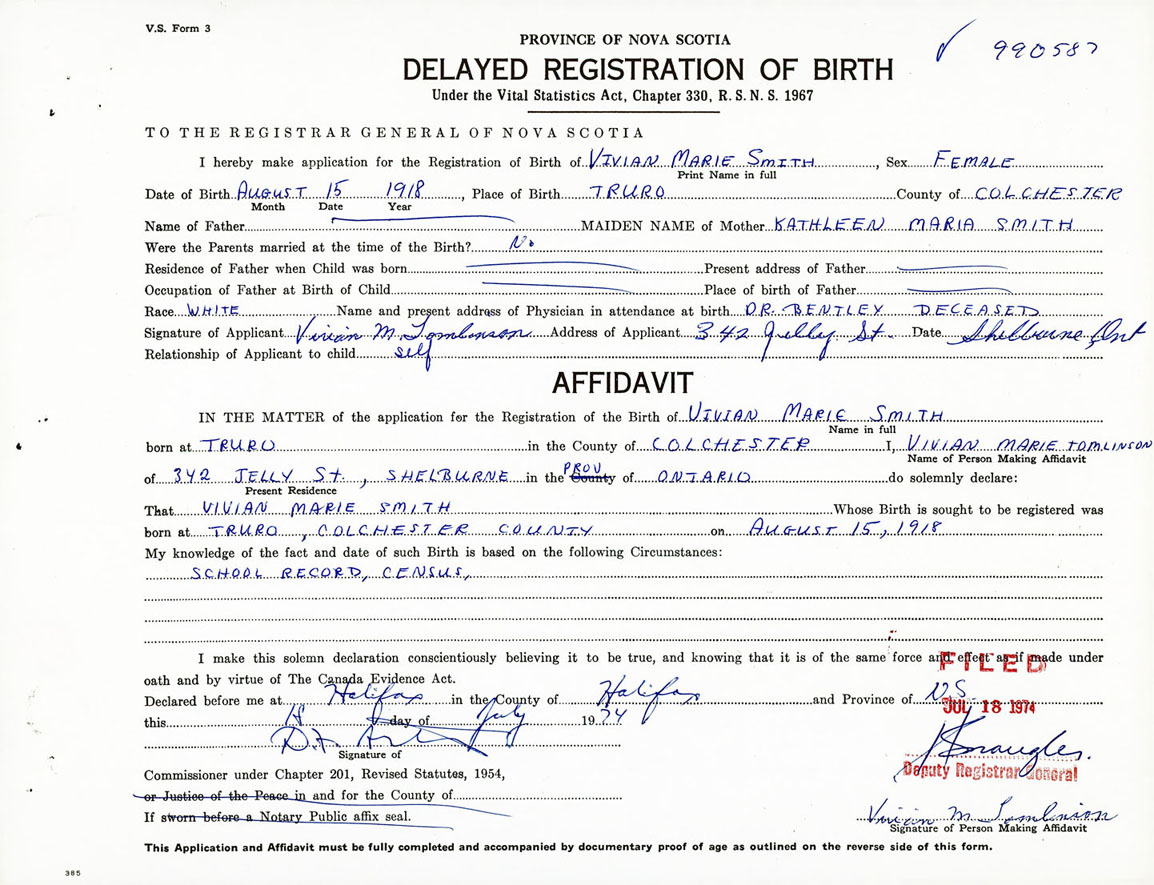 V.S. Form 3
990587
PROVINCE OF NOVA SCOTIA
DELAYED REGISTRATION OF BIRTH
Under the Vital Statistics Act, Chapter 330, R.S.N.S. 1967
TO THE REGISTRAR GENERAL OF NOVA SCOTIA
I hereby make application for the Registration of Birth of VIVIAN MARIE SMITH, Sex FEMALE
Print Name in full
Date of Birth AUGUST 15 1918, Place of Birth TRURO County of COLCHESTER
Month Date Year
Name of Father MAIDEN NAME of Mother KATHLEEN MARIA SMITH
Were the Parents married at the time of the Birth? No
Residence of Father when Child was born Present address of Father
Occupation of Father at Birth of Child Place of birth of Father
Race WHITE Name and present address of Physician in attendance at birth DR. BENTLEY DECEASED
Signature of Applicant Vivian M. Tomlinson Address of Applicant 342 Jelly St. Date Shelburne Ont
Relationship of Applicant to child self
AFFIDAVIT
IN THE MATTER of the application for the Registration of the Birth of VIVIAN MARIE SMITH
Name in full
born at TRURO in the County of COLCHESTER I, VIVIAN MARIE TOMLINSON
Name of Person Making Affidavit
of 342 JELLY St., SHELBURNE in the County PROV of ONTARIO do solemnly declare:
Present Residence
That VIVIAN MARIE SMITH Whose Birth is sought to be registered was
born at TRURO, COLCHESTER COUNTY on AUGUST 15, 1918
My knowledge of the fact and date of such Birth is based on the following Circumstances:
SCHOOL RECORD, CENSUS,
I make this solemn declaration conscientiously believing it to be true, and knowing that it is of the same force and effect as if made under
FILED
oath and by virtue of The Canada Evidence Act.
Declared before me at Halifax in the County of Halifax and Province of N.S.
this 18 day of July 1974
JUL 18 1974
Signature of
Deputy Registrar General
Commissioner under Chapter 201, Revised Statutes, 1954,
or Justice of the Peace in and for the County of
If sworn before a Notary Public affix seal.
Vivian M. Tomlinson
Signature of Person Making Affidavit
This Application and Affidavit must be fully completed and accompanied by documentary proof of age as outlined on the reverse side of this form.
385